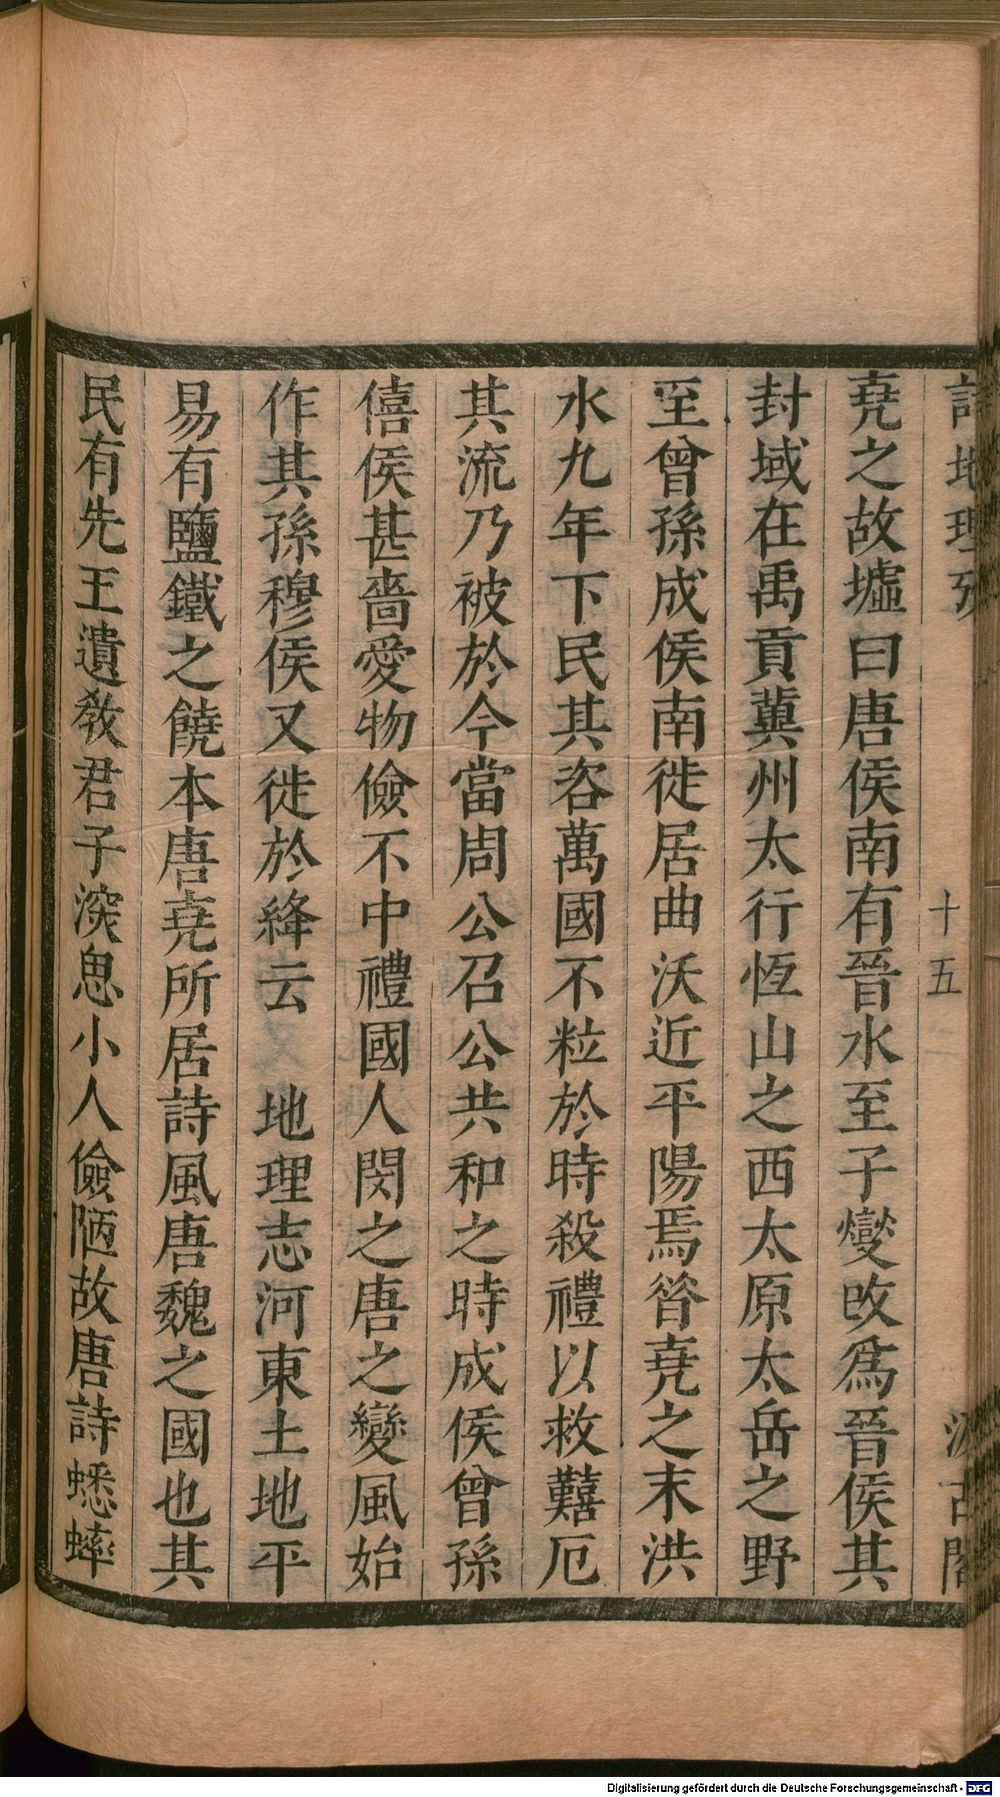 詩地理攷
十五
汲古閣
堯之故墟曰唐侯南有晉水至子燮改爲晉侯其
封域在禹貢冀州太行恆山之西太原太岳之野
至曾孫成侯南徙居曲沃近平陽焉昝堯之末洪
水九年下民其咨萬國不粒於時殺禮以救囏厄
其流乃被於今當周公召公共和之時成侯曾孫
僖侯甚嗇愛物儉不中禮國人閔之唐之變風始
作其孫穆侯又徙於絳云　地理志河東土地平
易有鹽鐵之饒本唐堯所居詩風唐魏之國也其
民有先王遺敎君子深思小人儉陋故唐詩蟋蟀
Digitalisierung gefördert durch die Deutsche Forschungsgemeinschaft - DFG